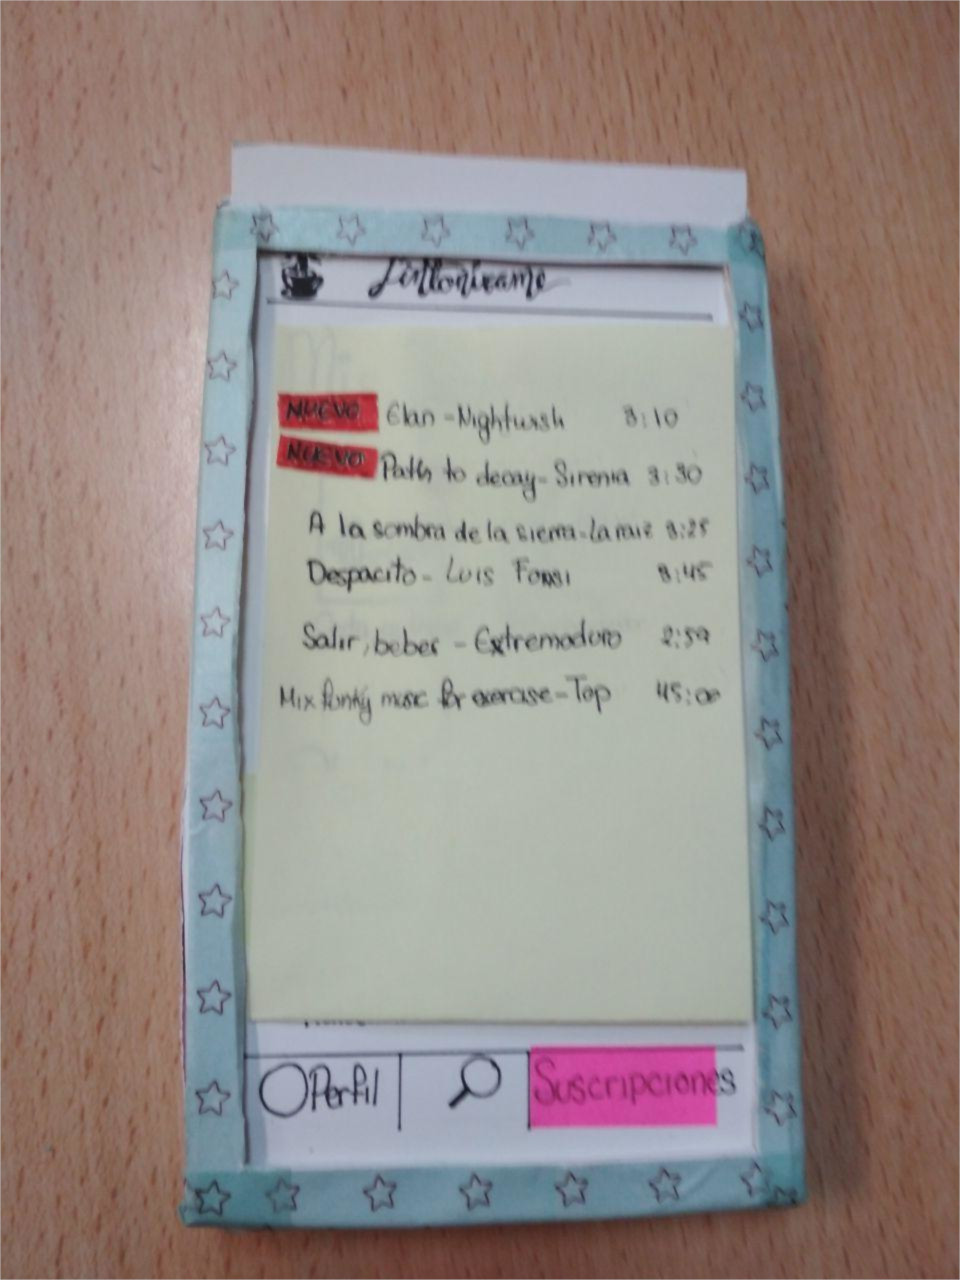 Sintonizame
NUEVO Elan - Nightwish 3:10
NUEVO Path to decay - Sirenia 3:30
A la sombra de la sierra - La raiz 3:25
Despacito - Luis Fonsi 3:45
Salir, beber - Extremoduro 2:59
Mix funky music for exercise - Top 45:00
Perfil
Suscripciones